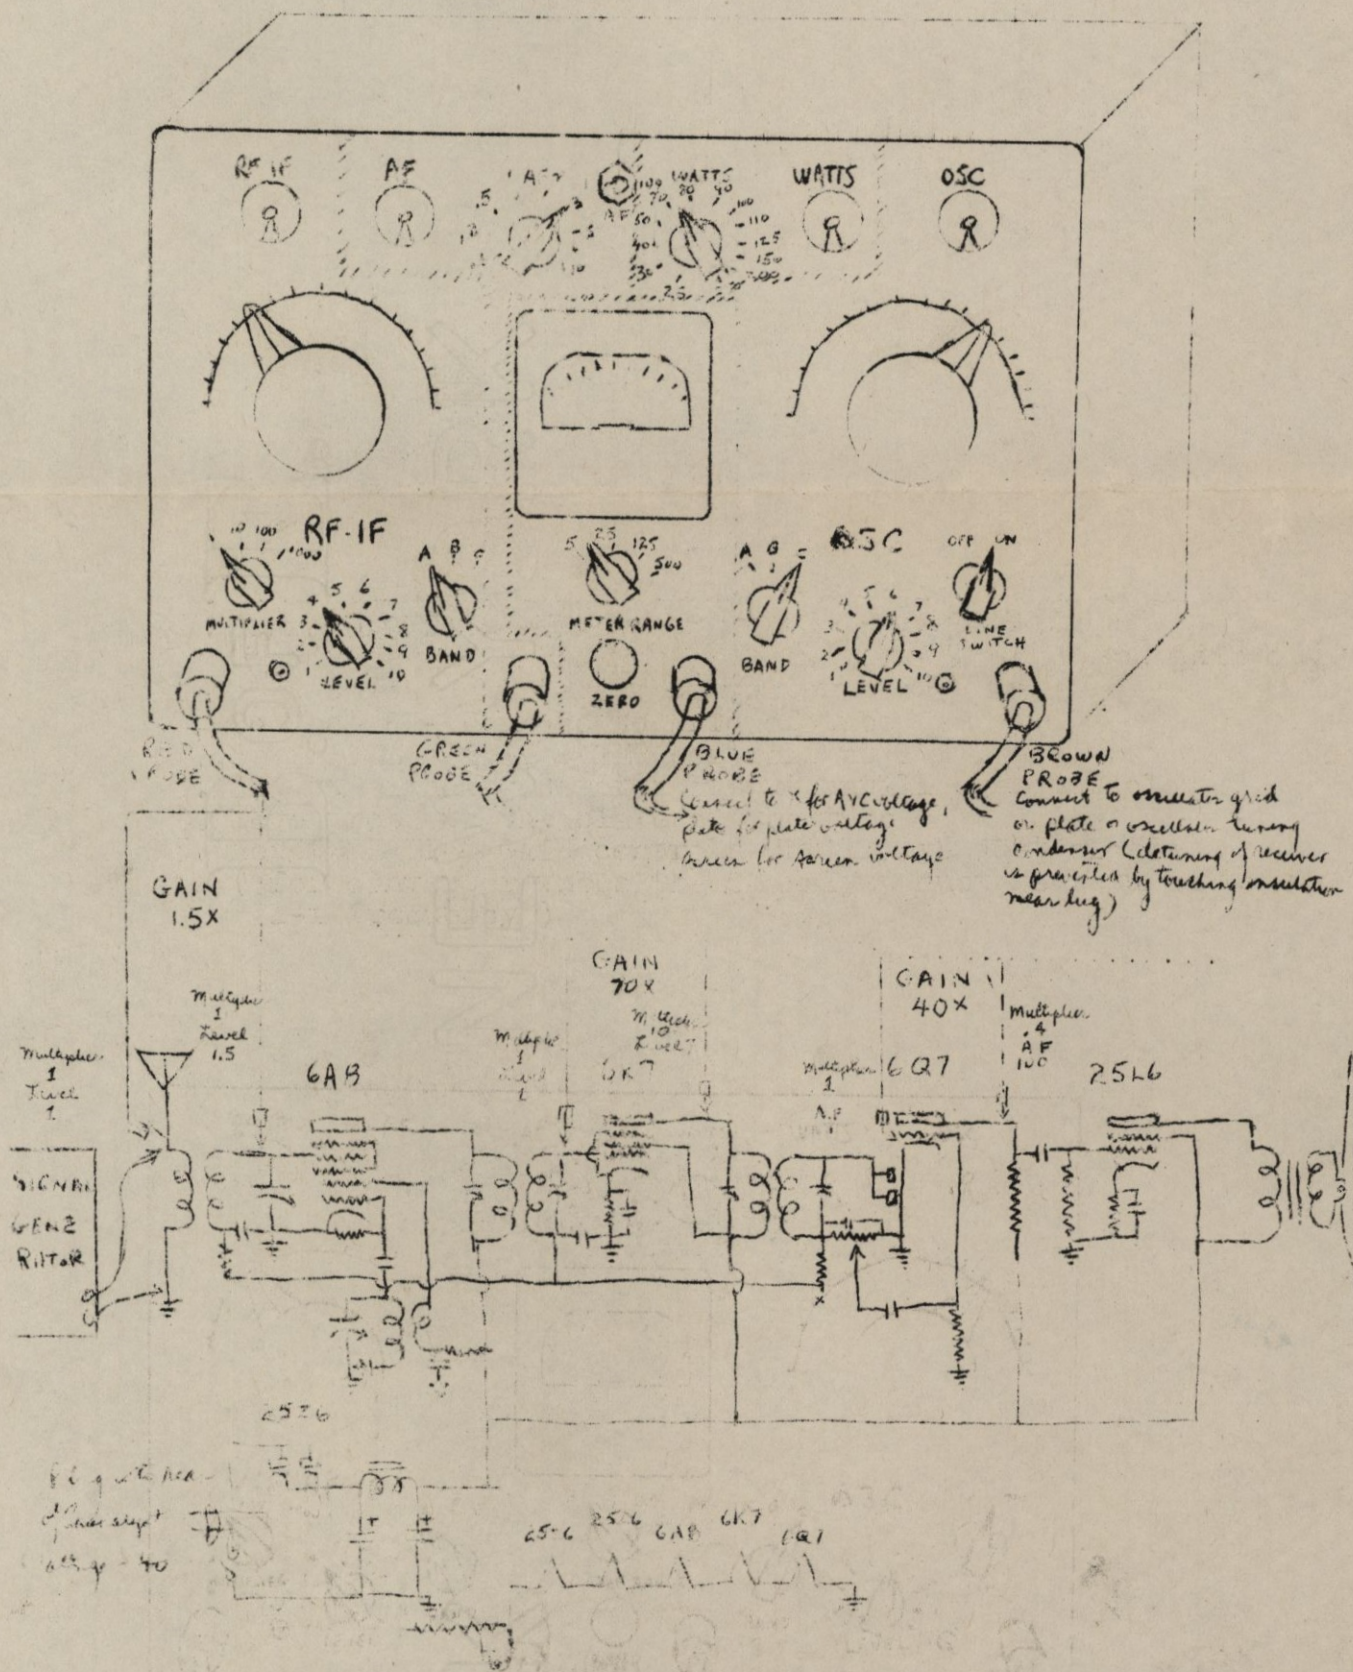 RF-IF AF WATTS WATTS OSC
AF
100
70 80 90
50 100
40 110
30 125
25 150
RF-IF
10 100 1000
MULTIPLIER
A B C
BAND
1 2 3 4 5 6 7 8 9 10
LEVEL
5 25 125 500
METER RANGE
ZERO
OSC
A B C
BAND
1 2 3 4 5 6 7 8 9 10
LEVEL
OFF ON
LINE
SWITCH
RED
PROBE
GREEN
PROBE
BLUE
PROBE
Connect to for AVC voltage,
plate for plate voltage
screen for screen voltage
BROWN
PROBE
Connect to oscillator grid
or plate or oscillator tuning
condenser (detuning of receiver
is prevented by touching insulation
near lug)
GAIN
1.5X
GAIN
70X
GAIN
40X
Multiplier
1
Level
1
Multiplier
1
Level
1.5
Multiplier
1
Level
1
Multiplier
10
Level 7
Multiplier
1
AF
Multiplier
.4
AF
100
6A8
6K7
6Q7
25L6
SIGNAL
GENE
RATOR
25Z6
25Z6 25L6 6A8 6K7 6Q7